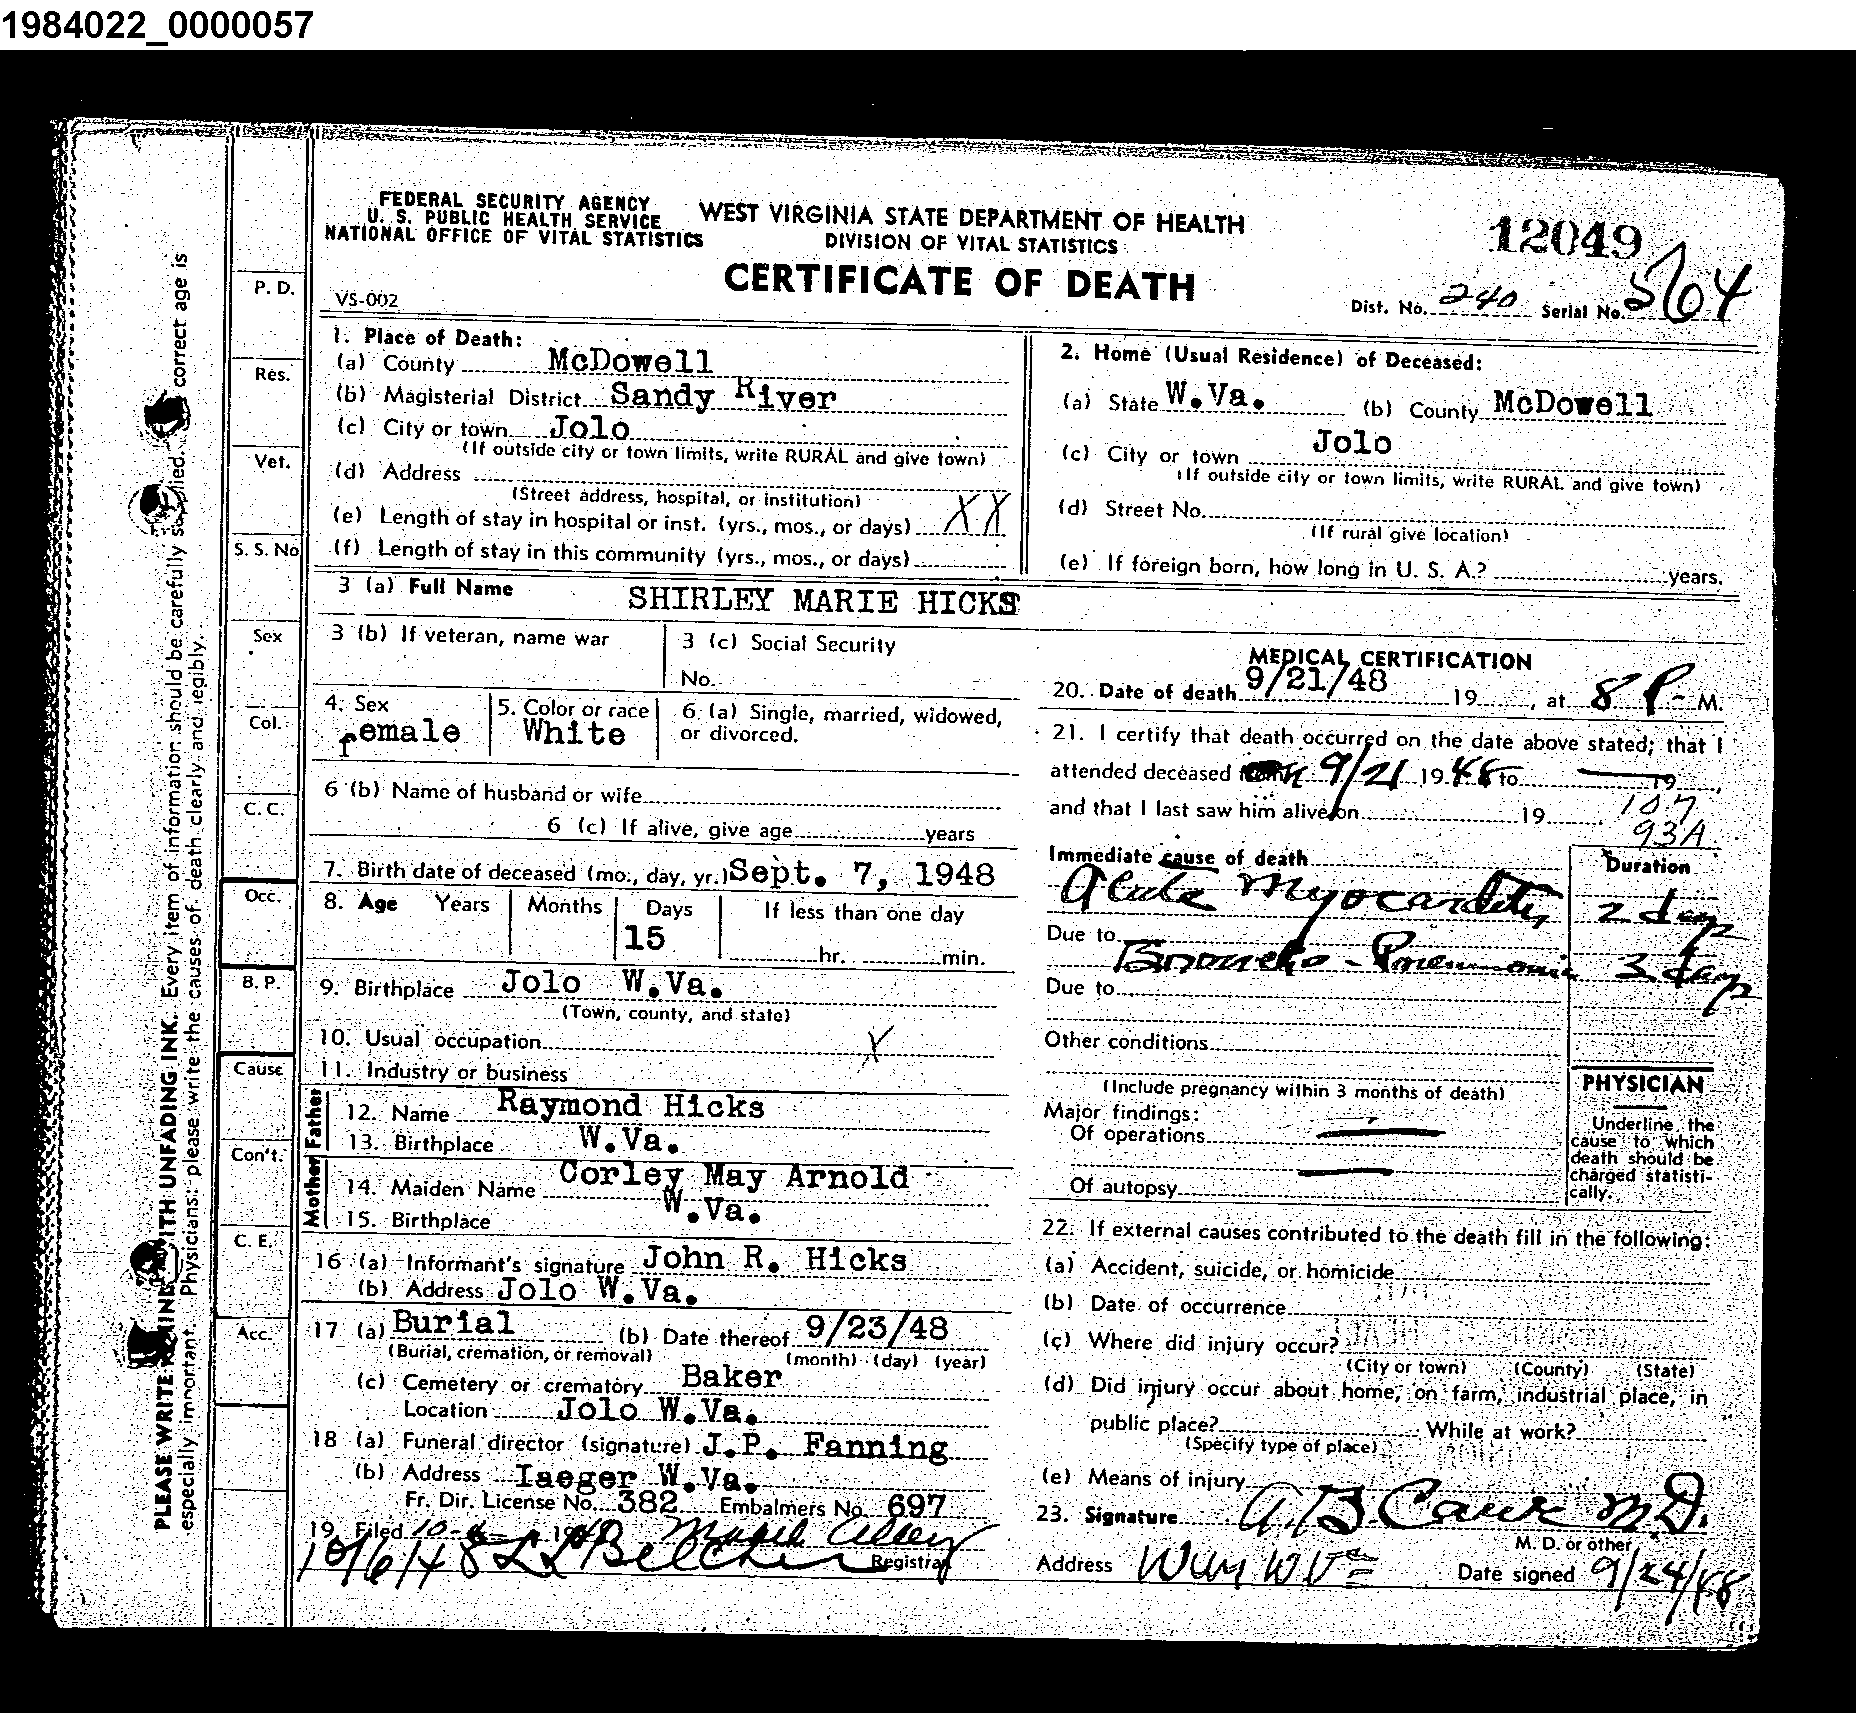 1984022_0000057
FEDERAL SECURITY AGENCY
U. S. PUBLIC HEALTH SERVICE
NATIONAL OFFICE OF VITAL STATISTICS
WEST VIRGINIA STATE DEPARTMENT OF HEALTH
DIVISION OF VITAL STATISTICS
CERTIFICATE OF DEATH
12049
VS-002
Dist. No. 240 Serial No. 564
PLEASE WRITE PLAINLY WITH UNFADING INK. Every item of information should be carefully supplied. correct age is
especially important. Physicians: please write the causes of death clearly and legibly.
P. D.
Res.
Vet.
S. S. No
Sex
Col.
C. C.
Occ.
B. P.
Cause
Con't.
C. E.
Acc.
1. Place of Death:
(a) County McDowell
(b) Magisterial District Sandy River
(c) City or town Jolo
(If outside city or town limits, write RURAL and give town)
(d) Address
(Street address, hospital, or institution)
(e) Length of stay in hospital or inst. (yrs., mos., or days) XX
(f) Length of stay in this community (yrs., mos., or days)
2. Home (Usual Residence) of Deceased:
(a) State W.Va. (b) County McDowell
(c) City or town Jolo
(If outside city or town limits, write RURAL and give town)
(d) Street No.
(If rural give location)
(e) If foreign born, how long in U. S. A.? years.
3 (a) Full Name SHIRLEY MARIE HICKS
3 (b) If veteran, name war
3 (c) Social Security
No.
4. Sex
female
5. Color or race
White
6 (a) Single, married, widowed,
or divorced.
6 (b) Name of husband or wife
6 (c) If alive, give age years
7. Birth date of deceased (mo., day, yr.) Sept. 7, 1948
8. Age Years Months Days If less than one day
15
hr. min.
9. Birthplace Jolo W.Va.
(Town, county, and state)
10. Usual occupation X
11. Industry or business
Father
12. Name Raymond Hicks
13. Birthplace W.Va.
Mother
14. Maiden Name Corley May Arnold
15. Birthplace W.Va.
16 (a) Informant's signature John R. Hicks
(b) Address Jolo W.Va.
17 (a) Burial (b) Date thereof 9/23/48
(Burial, cremation, or removal) (month) (day) (year)
(c) Cemetery or crematory Baker
Location Jolo W.Va.
18 (a) Funeral director (signature) J.P. Fanning
(b) Address Iaeger W.Va.
Fr. Dir. License No. 382 Embalmers No. 697
19. Filed 10-
10/6/48 L L Belcher Registrar
MEDICAL CERTIFICATION
20. Date of death 9/21/48 19 , at 8 P - M.
21. I certify that death occurred on the date above stated; that I
attended deceased 9/21 1948 to 19 ,
and that I last saw him alive on 19
107
93A
Immediate cause of death
Duration
Acute Myocarditis 2 days
Due to
Broncho-Pneumonia 3 days
Due to
Other conditions
(Include pregnancy within 3 months of death)
Major findings:
Of operations
Of autopsy
PHYSICIAN
Underline the
cause to which
death should be
charged statisti-
cally.
22. If external causes contributed to the death fill in the following:
(a) Accident, suicide, or homicide
(b) Date of occurrence
(c) Where did injury occur?
(City or town) (County) (State)
(d) Did injury occur about home, on farm, industrial place, in
public place? While at work?
(Specify type of place)
(e) Means of injury
23. Signature A. B. M.D.
M. D. or other
Address W Va Date signed 9/24/48